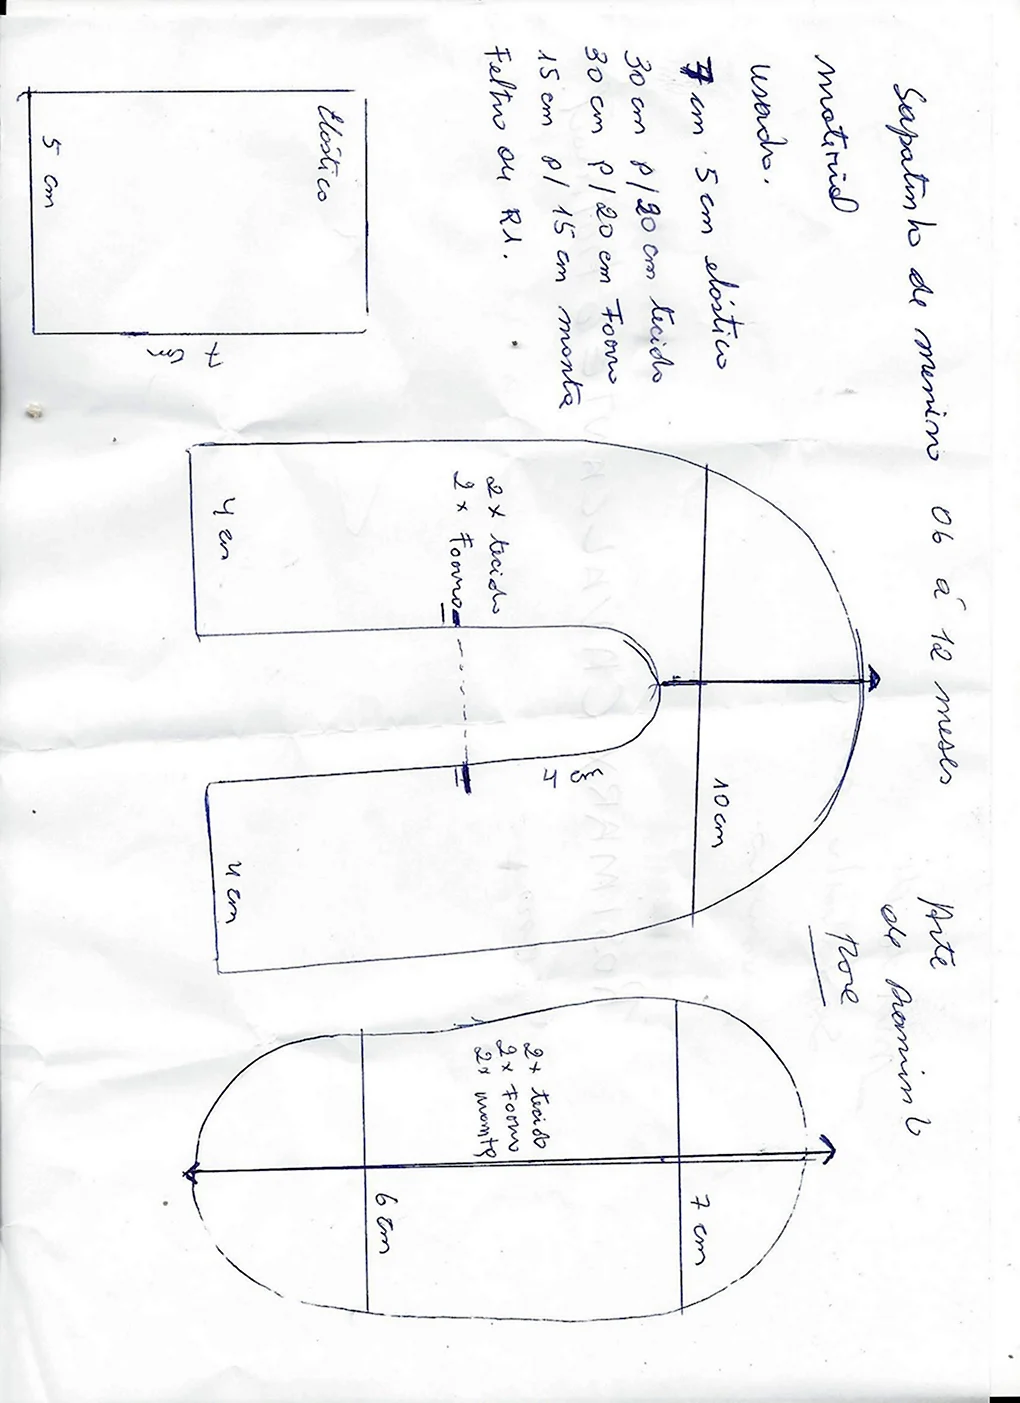 Sapatinho de menino 06 á 12 meses
Arte
de
Rose
material
usado.
7 cm 5 cm elástico
30 cm p/20 cm tecido
30 cm p/20 cm Forro
15 cm p/ 15 cm manta
Feltro ou R1.
Elástico
5 cm
7 cm
4 cm
2x tecido
2x Forro
10 cm
4 cm
4 cm
2x tecido
2x Forro
2x manta
6 cm
7 cm